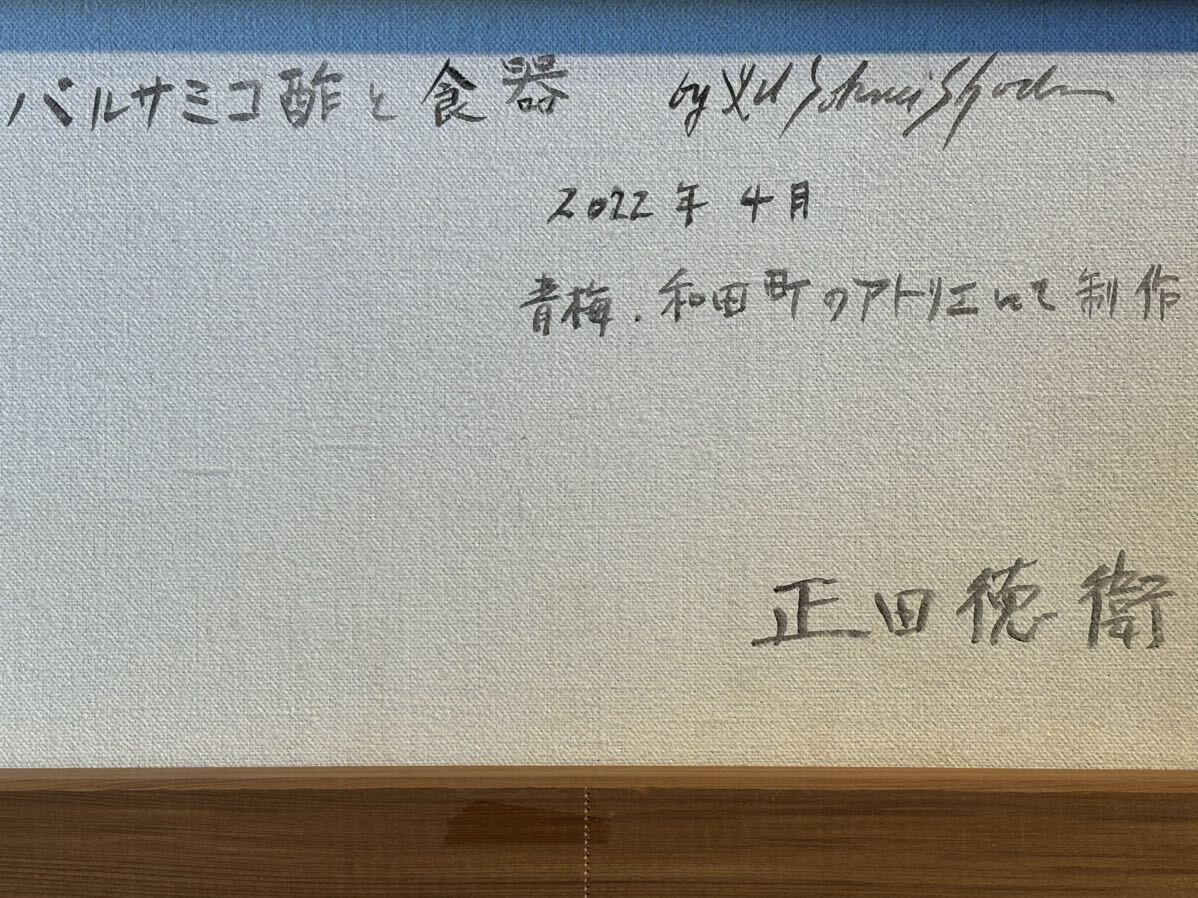 バルサミコ酢と食器 by
2022年4月
青梅.和田町のアトリエにて制作
正田徳衛